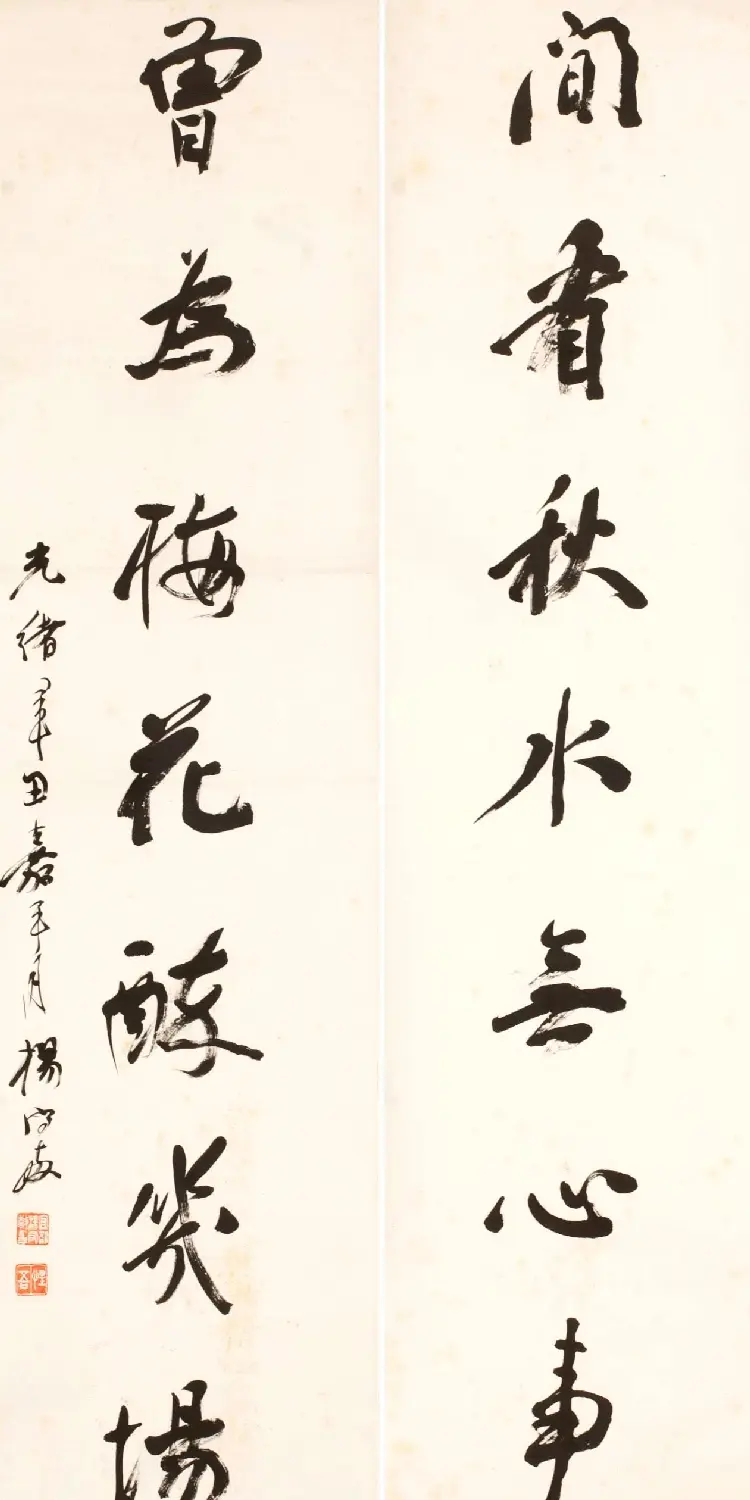 閒看秋水無心事
曾為梅花醉幾場
光緒辛丑嘉平月楊守敬
惺吾